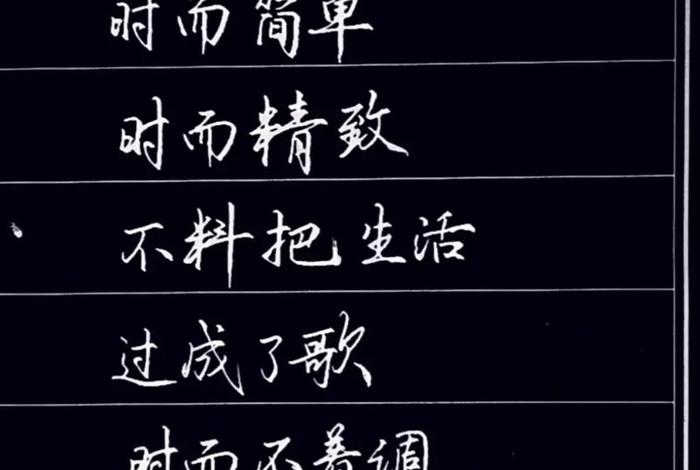 时而简单
时而精致
不料把生活
过成了歌
时而不着调